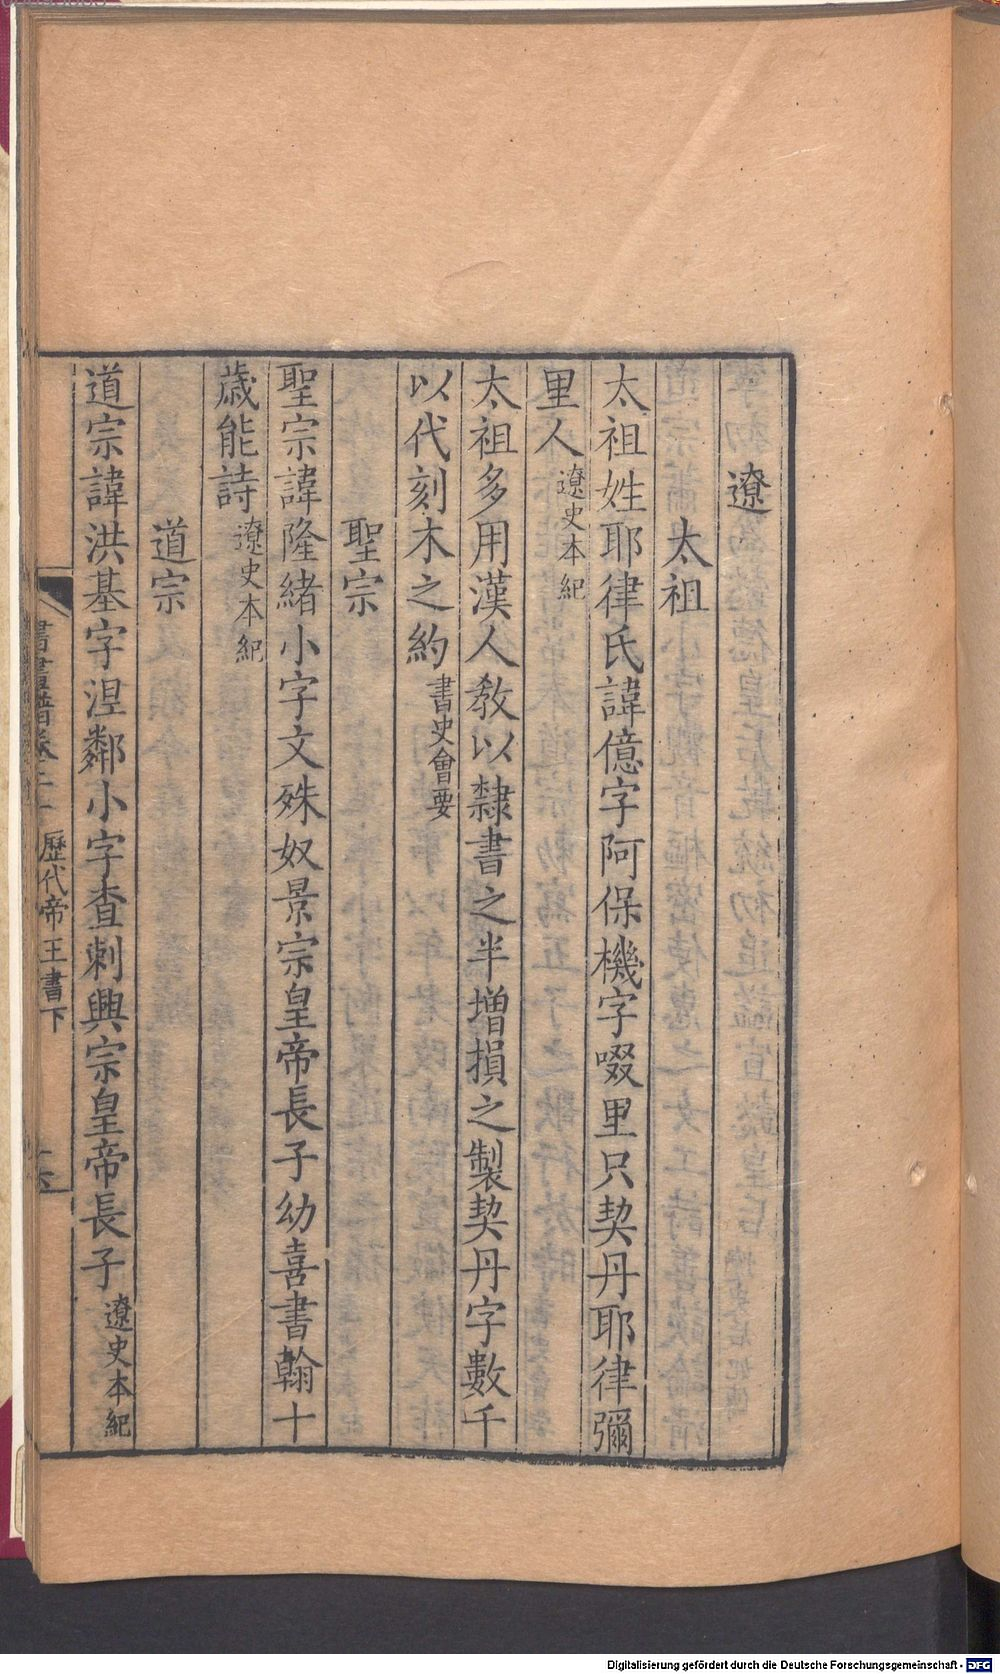 遼
太祖
太祖姓耶律氏諱億字阿保機字啜里只契丹耶律彌
里人遼史本紀
太祖多用漢人教以隸書之半增損之製契丹字數千
以代刻木之約書史會要
聖宗
聖宗諱隆緒小字文殊奴景宗皇帝長子幼喜書翰十
歲能詩遼史本紀
道宗
道宗諱洪基字涅鄰小字查剌興宗皇帝長子遼史本紀
歷代帝王書下
Digitalisierung gefördert durch die Deutsche Forschungsgemeinschaft - DFG